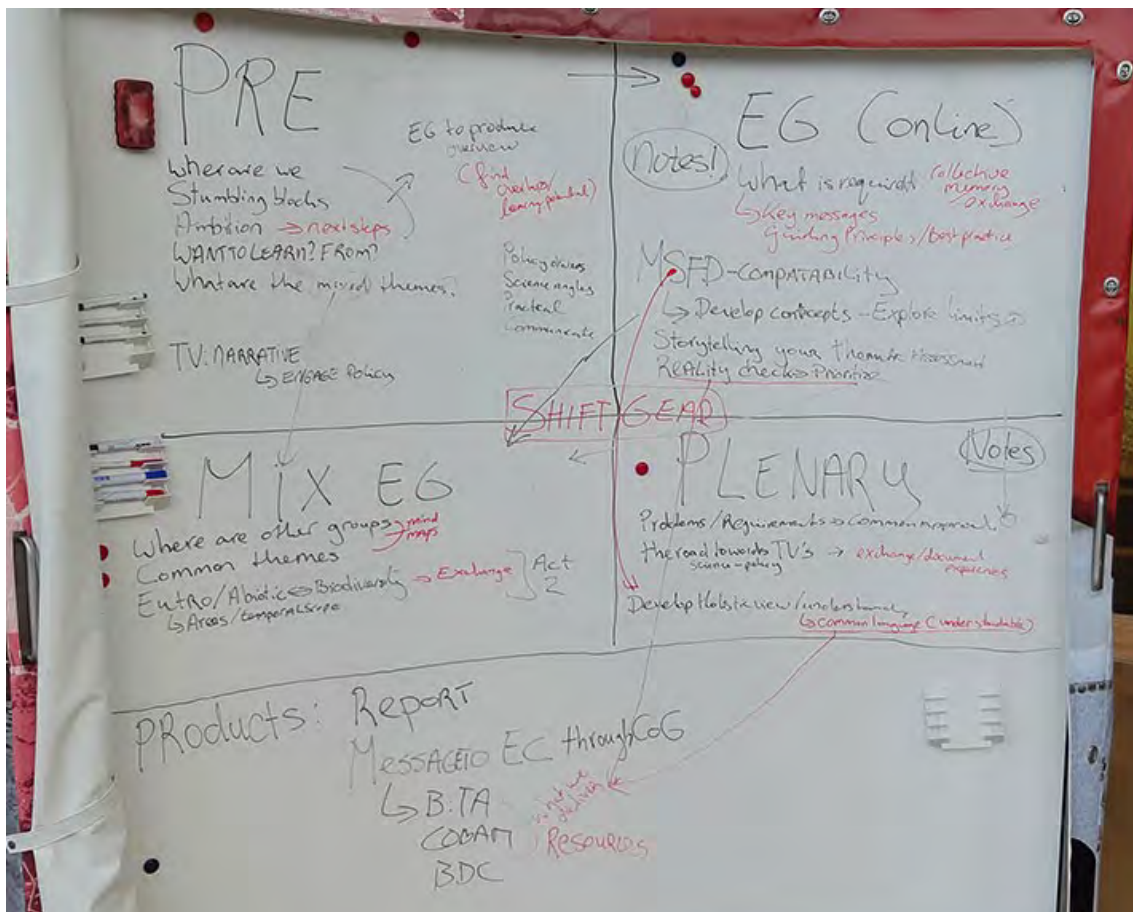 PRE
Where are we
Stumbling blocks
Ambition → next steps
WANT TO LEARN? FROM?
What are the mixed themes?
TV: NARRATIVE
↳ ENGAGE POLICY
EG to produce
overview
(find
overlap/
learning potential)
Policy
Science angles
Practical
Communicate
EG (online)
Notes!
What is required
collective
memory
exchange
↳ Key messages
Guiding Principles/Best practice
MSFD-COMPATABILITY
↳ Develop concepts - Explore limits
Storytelling your Thematic Assessment
Reality check → Prioritize
SHIFT GEAR
MIX EG
Where are other groups → mind
maps
Common themes
Eutro/Abiotic ↔ Biodiversity → Exchange
↳ Areas/temporal scope
Act
2
PLENARY
Notes
Problems/Requirements → Common approach
the road towards TV's → exchange/document
science-policy
experiences
Develop Holistic view/understand
↳ common language (understandable)
PRoducts: Report
Message to EC through CoG
↳ B.TA
COBAM
BDC
what we
deliver
Resources